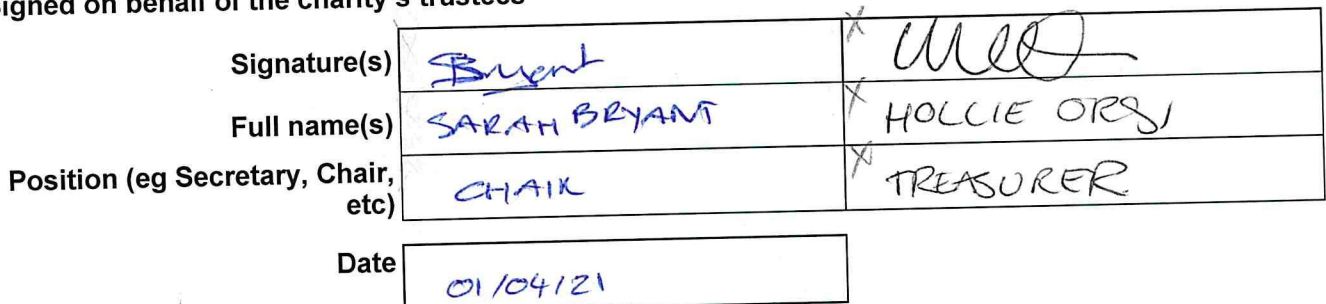 signed on behalf of the charity's trustees
Signature(s) Bryant X
Full name(s) SARAH BRYANT X HOLLIE ORSI
Position (eg Secretary, Chair, etc) CHAIR X TREASURER
Date 01/04/21